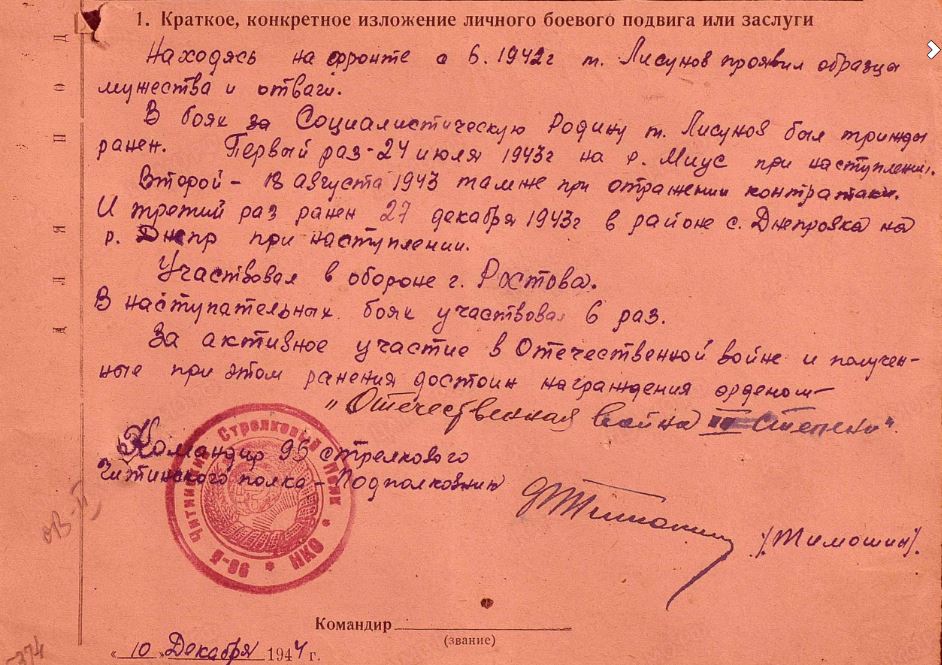 1. Краткое, конкретное изложение личного боевого подвига или заслуги
Находясь на фронте с 6.1942г т. Лисунов проявил образцы
мужества и отваги.
В боях за Социалистическую Родину т. Лисунов был трижды
ранен. Первый раз - 24 июля 1943г на р. Миус при наступлении.
Второй - 18 августа 1943 там же при отражении контратаки.
И третий раз ранен 27 декабря 1943г в районе с. Днепровка на
р. Днепр при наступлении.
Участвовал в обороне г. Ростова.
В наступательных боях участвовал 6 раз.
За активное участие в Отечественной войне и получен-
ные при этом ранения достоин награждения орденом
"Отечественная война II степени".
Командир 96 стрелкового
Читинского полка - Подполковник
(Тимошин).
Читинский Стрелковый Полк
96-й * НКО *
ОВ-II
Командир
(звание)
"10" Декабря 1944 г.
374
ДЛЯ ПОД